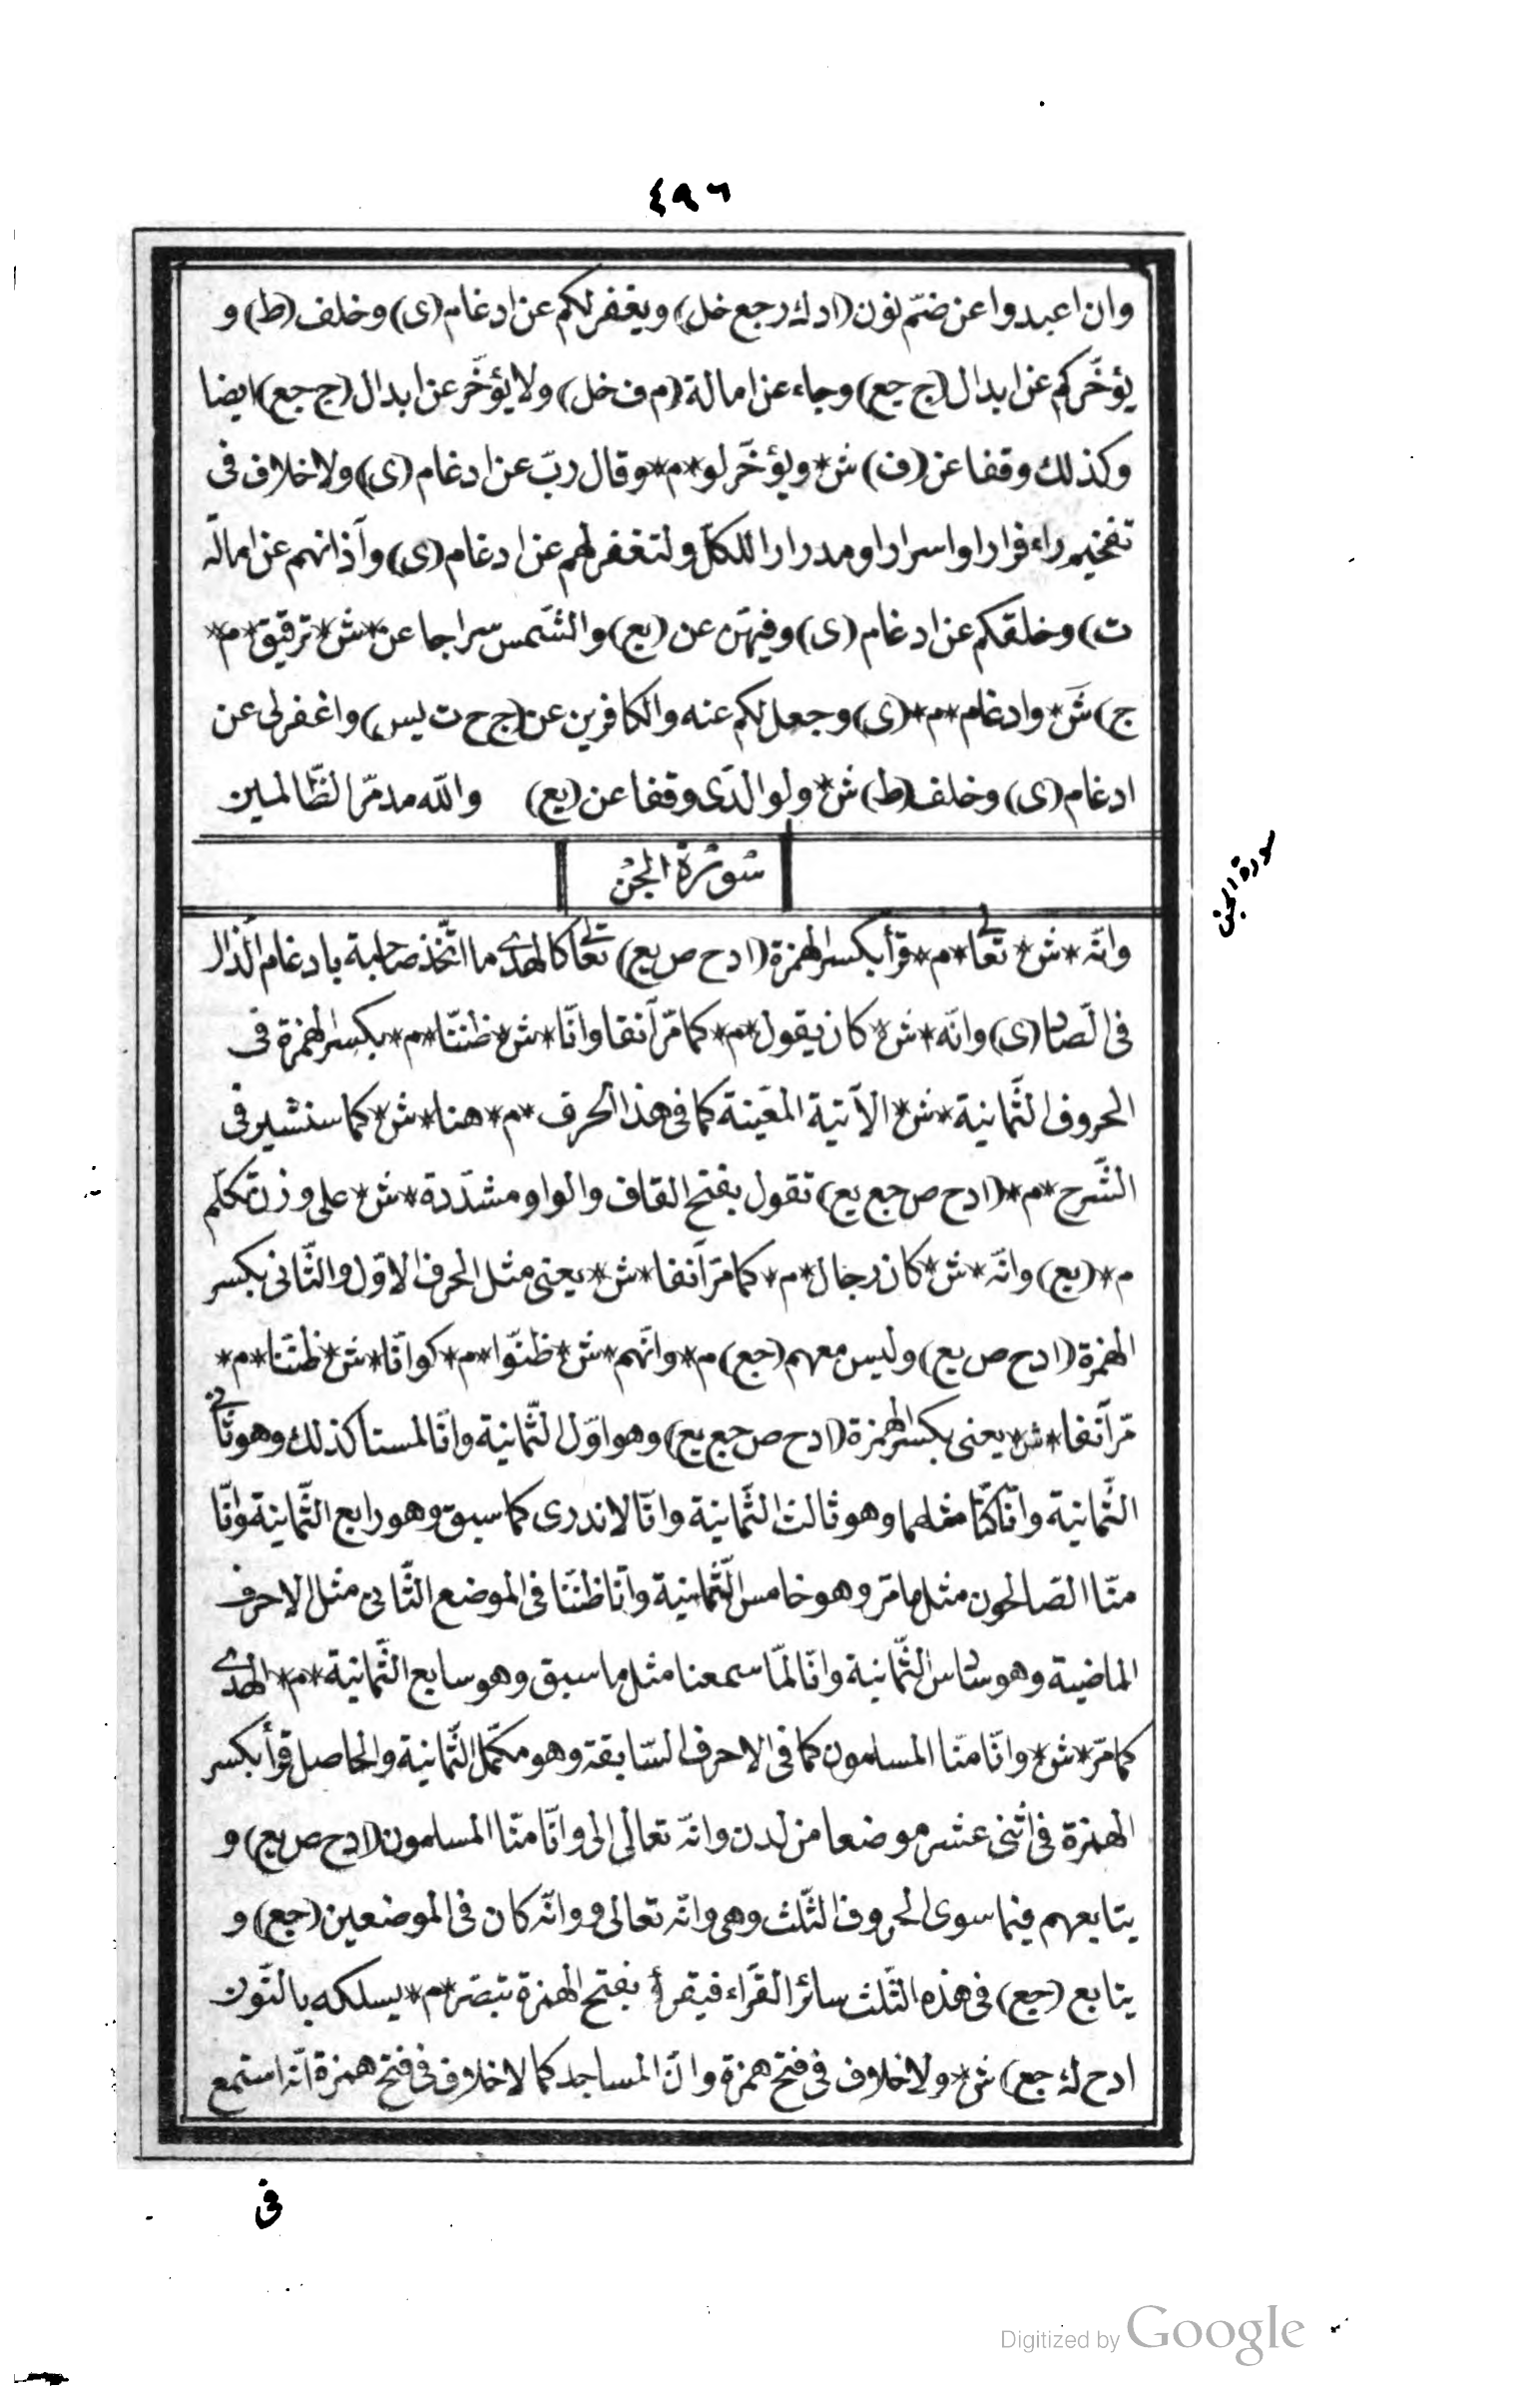 ٤٩٦
وان اعبدوا عن ضمّ نون (ا د ك ر جع خل) ويغفر لكم عن ادغام (ى) وخلف (ط) و
يؤخّركم عن ابدال (ج جع) وجاء عن امالة (م ف خل) ولا يؤخّر عن ابدال (ج جع) ايضا
وكذلك وقفا عن (ف) ش* ويؤخّر لو*م*وقال ربّ عن ادغام (ى) ولا خلاف فى
تفخيم راء فرارا واسرارا ومدرارا للكلّ ولتغفر لهم عن ادغام (ى) وآذانهم عن امالة
ت) وخلقكم عن ادغام (ى) وفيهنّ عن (يع) والشّمس سراجا عن*ش*ترقيق*م*
ج) ش* وادغام*م*(ى) وجعل لكم عنه والكافرين عن (ج ح ت يس) واغفر لى عن
ادغام (ى) وخلف (ط) ش* ولوالدىّ وقفا عن (يع) والله مدمّر الظّالمين
سورة الجن
سورة الجن
وانّه*ش*تعالى*م*قرأ بكسر الهمزة (ا د ح ص يع) تعالى كالهدى ما اتّخذ صاحبة بادغام الذّال
فى الصّاد (ى) وانّه*ش*كان يقول*م*كما مرّ آنفا وانّا*ش*ظننّا*م*بكسر الهمزة فى
الحروف الثّمانية*ش*الآتية المعيّنة كما فى هذا الحرف*م*هنا*ش*كما سنشير فى
الشّرح*م*(ا د ح ص جع يع) تقول بفتح القاف والواو مشدّدة*ش*على وزن تكلّم
م*(يع) وانّه*ش*كان رجال*م*كما مرّ آنفا*ش*يعنى مثل الحرف الاوّل والثّانى بكسر
الهمزة (ا د ح ص يع) وليس معهم (جع) م*وانّهم*ش*ظنّوا*م*كوانّا*ش*ظننّا*م*
مرّ آنفا*ش*يعنى بكسر الهمزة (ا د ح ص جع يع) وهو اوّل الثّمانية وانّا لمسنا كذلك وهو ثانى
الثّمانية وانّا كنّا مثلهما وهو ثالث الثّمانية وانّا لا ندرى كما سبق وهو رابع الثّمانية وانّا
منّا الصّالحون مثل ما مرّ وهو خامس الثّمانية وانّا ظننّا فى الموضع الثّانى مثل الاحرف
الماضية وهو سادس الثّمانية وانّا لمّا سمعنا مثل ما سبق وهو سابع الثّمانية*م*الهدى
كما مرّ*ش*وانّا منّا المسلمون كما فى الاحرف السّابقة وهو مكمّل الثّمانية والحاصل قرأ بكسر
الهمزة فى اثنى عشر موضعا من لدن وانّه تعالى الى وانّا منّا المسلمون (ا د ح ص يع) و
يتابعهم فيما سوى الحروف الثّلث وهى وانّه تعالى و وانّه كان فى الموضعين (جع) و
يتابع (جع) فى هذه الثّلث سائر القرّاء فيقرأ بفتح الهمزة تبصّر*م*يسلكه بالنّون
ا د ح ك جع) ش*ولا خلاف فى فتح همزة وانّ المساجد كما لا خلاف فى فتح همزة انّه استمع
فى
Digitized by Google